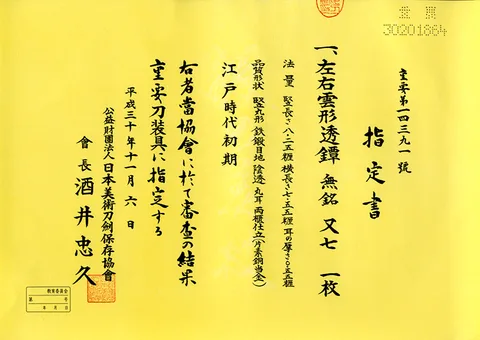 重要第一四三九一號
指定書
一、左右雲形透鐔 無銘 又七 一枚
法量 竪長さ八・二五糎 横長さ七・五五糎 耳の厚さ〇・五五糎
品質形状 竪丸形 鉄鍛目地 陰透 丸耳 両櫃仕立(片素銅当金)
江戸時代初期
右者當協會に於て審査の結果
重要刀装具に指定する
平成三十年十一月六日
公益財團法人日本美術刀劍保存協會
會長 酒井忠久
30201864
教育委員会
第 号
年 月 日